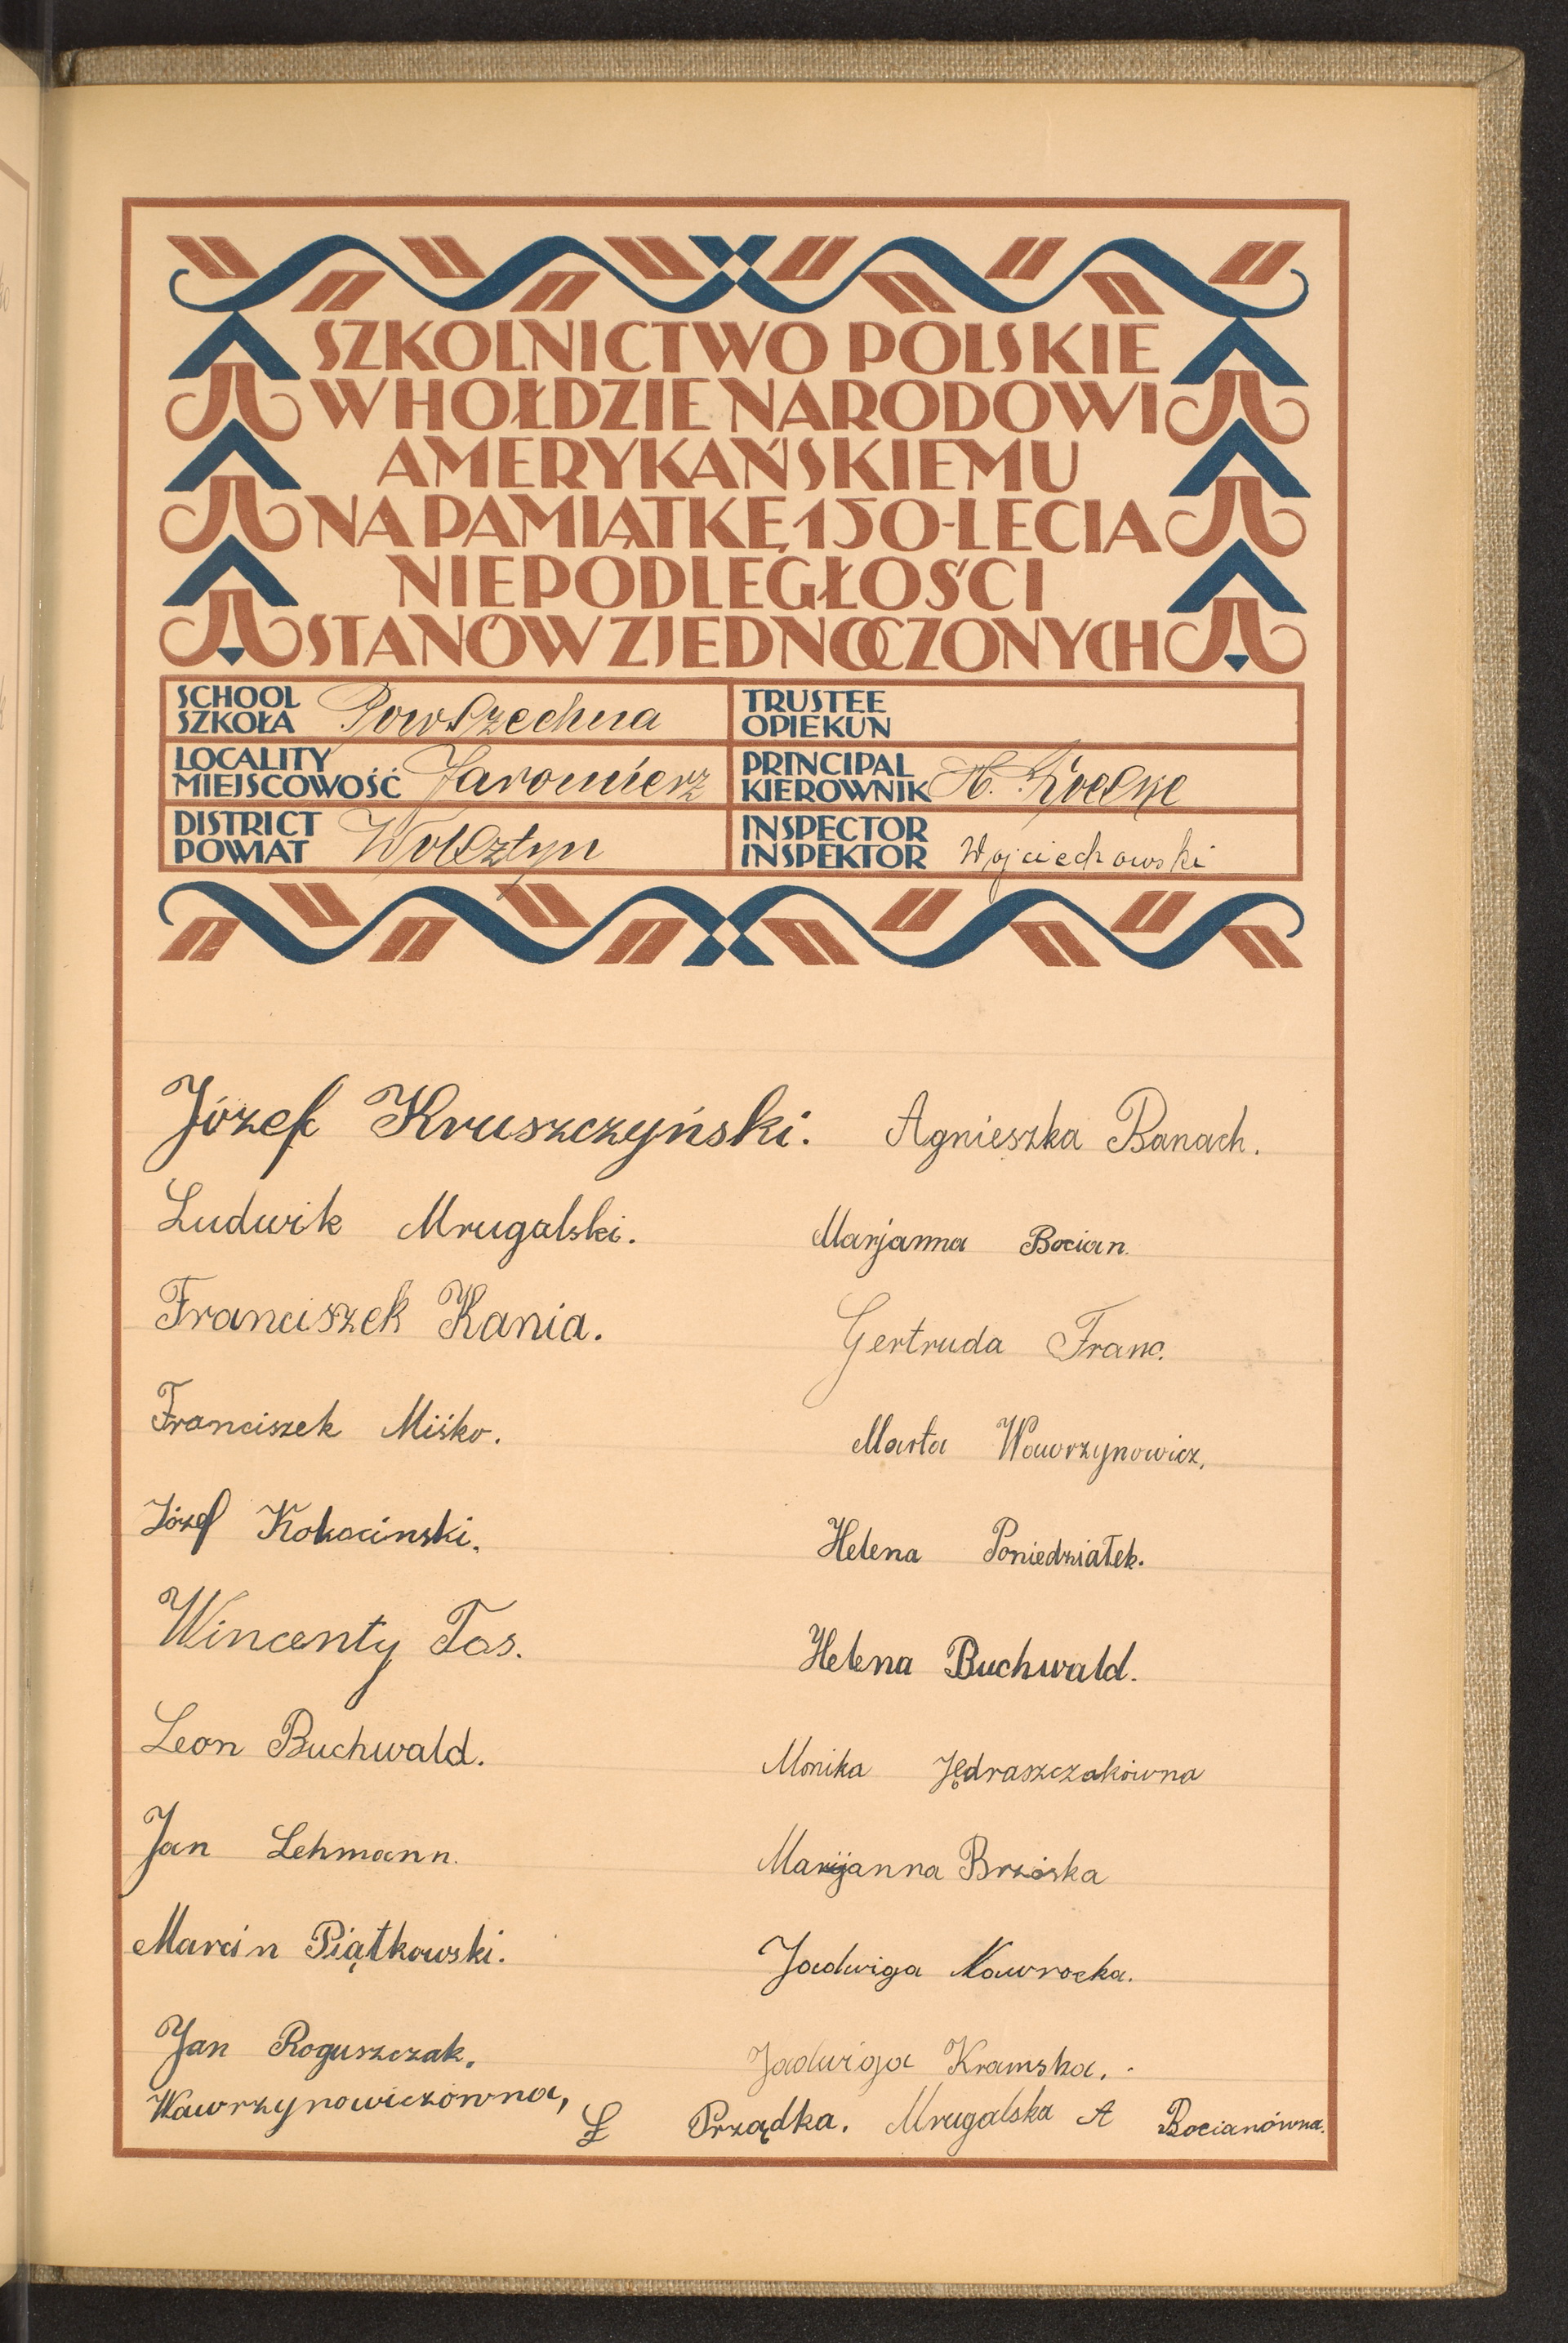 SZKOLNICTWO POLSKIE
W HOŁDZIE NARODOWI
AMERYKAŃSKIEMU
NA PAMIĄTKĘ 150-LECIA
NIEPODLEGŁOŚCI
STANÓW ZJEDNOCZONYCH
SCHOOL
SZKOŁA Powszechna
TRUSTEE
OPIEKUN
LOCALITY
MIEJSCOWOŚĆ Jaromierz
PRINCIPAL
KIEROWNIK H.
DISTRICT
POWIAT Wolsztyn
INSPECTOR
INSPEKTOR Wojciechowski
Józef Kruszczyński. Agnieszka Banach.
Ludwik Mrugalski. Marjanna Bocian.
Franciszek Kania. Gertruda Franc.
Franciszek Miśko. Marta Wawrzynowicz,
Józef Kokocinski. Helena Poniedziałek.
Wincenty Tas. Helena Buchwald.
Leon Buchwald. Monika Jędraszczakówna
Jan Lehmann. Marjanna Brzóska
Marcin Piątkowski. Jadwiga Nawrocka.
Jan Roguszczak. Jadwiga Kramska.
Wawrzynowiczówna, Ł Prządka. Mrugalska A Bocianówna.